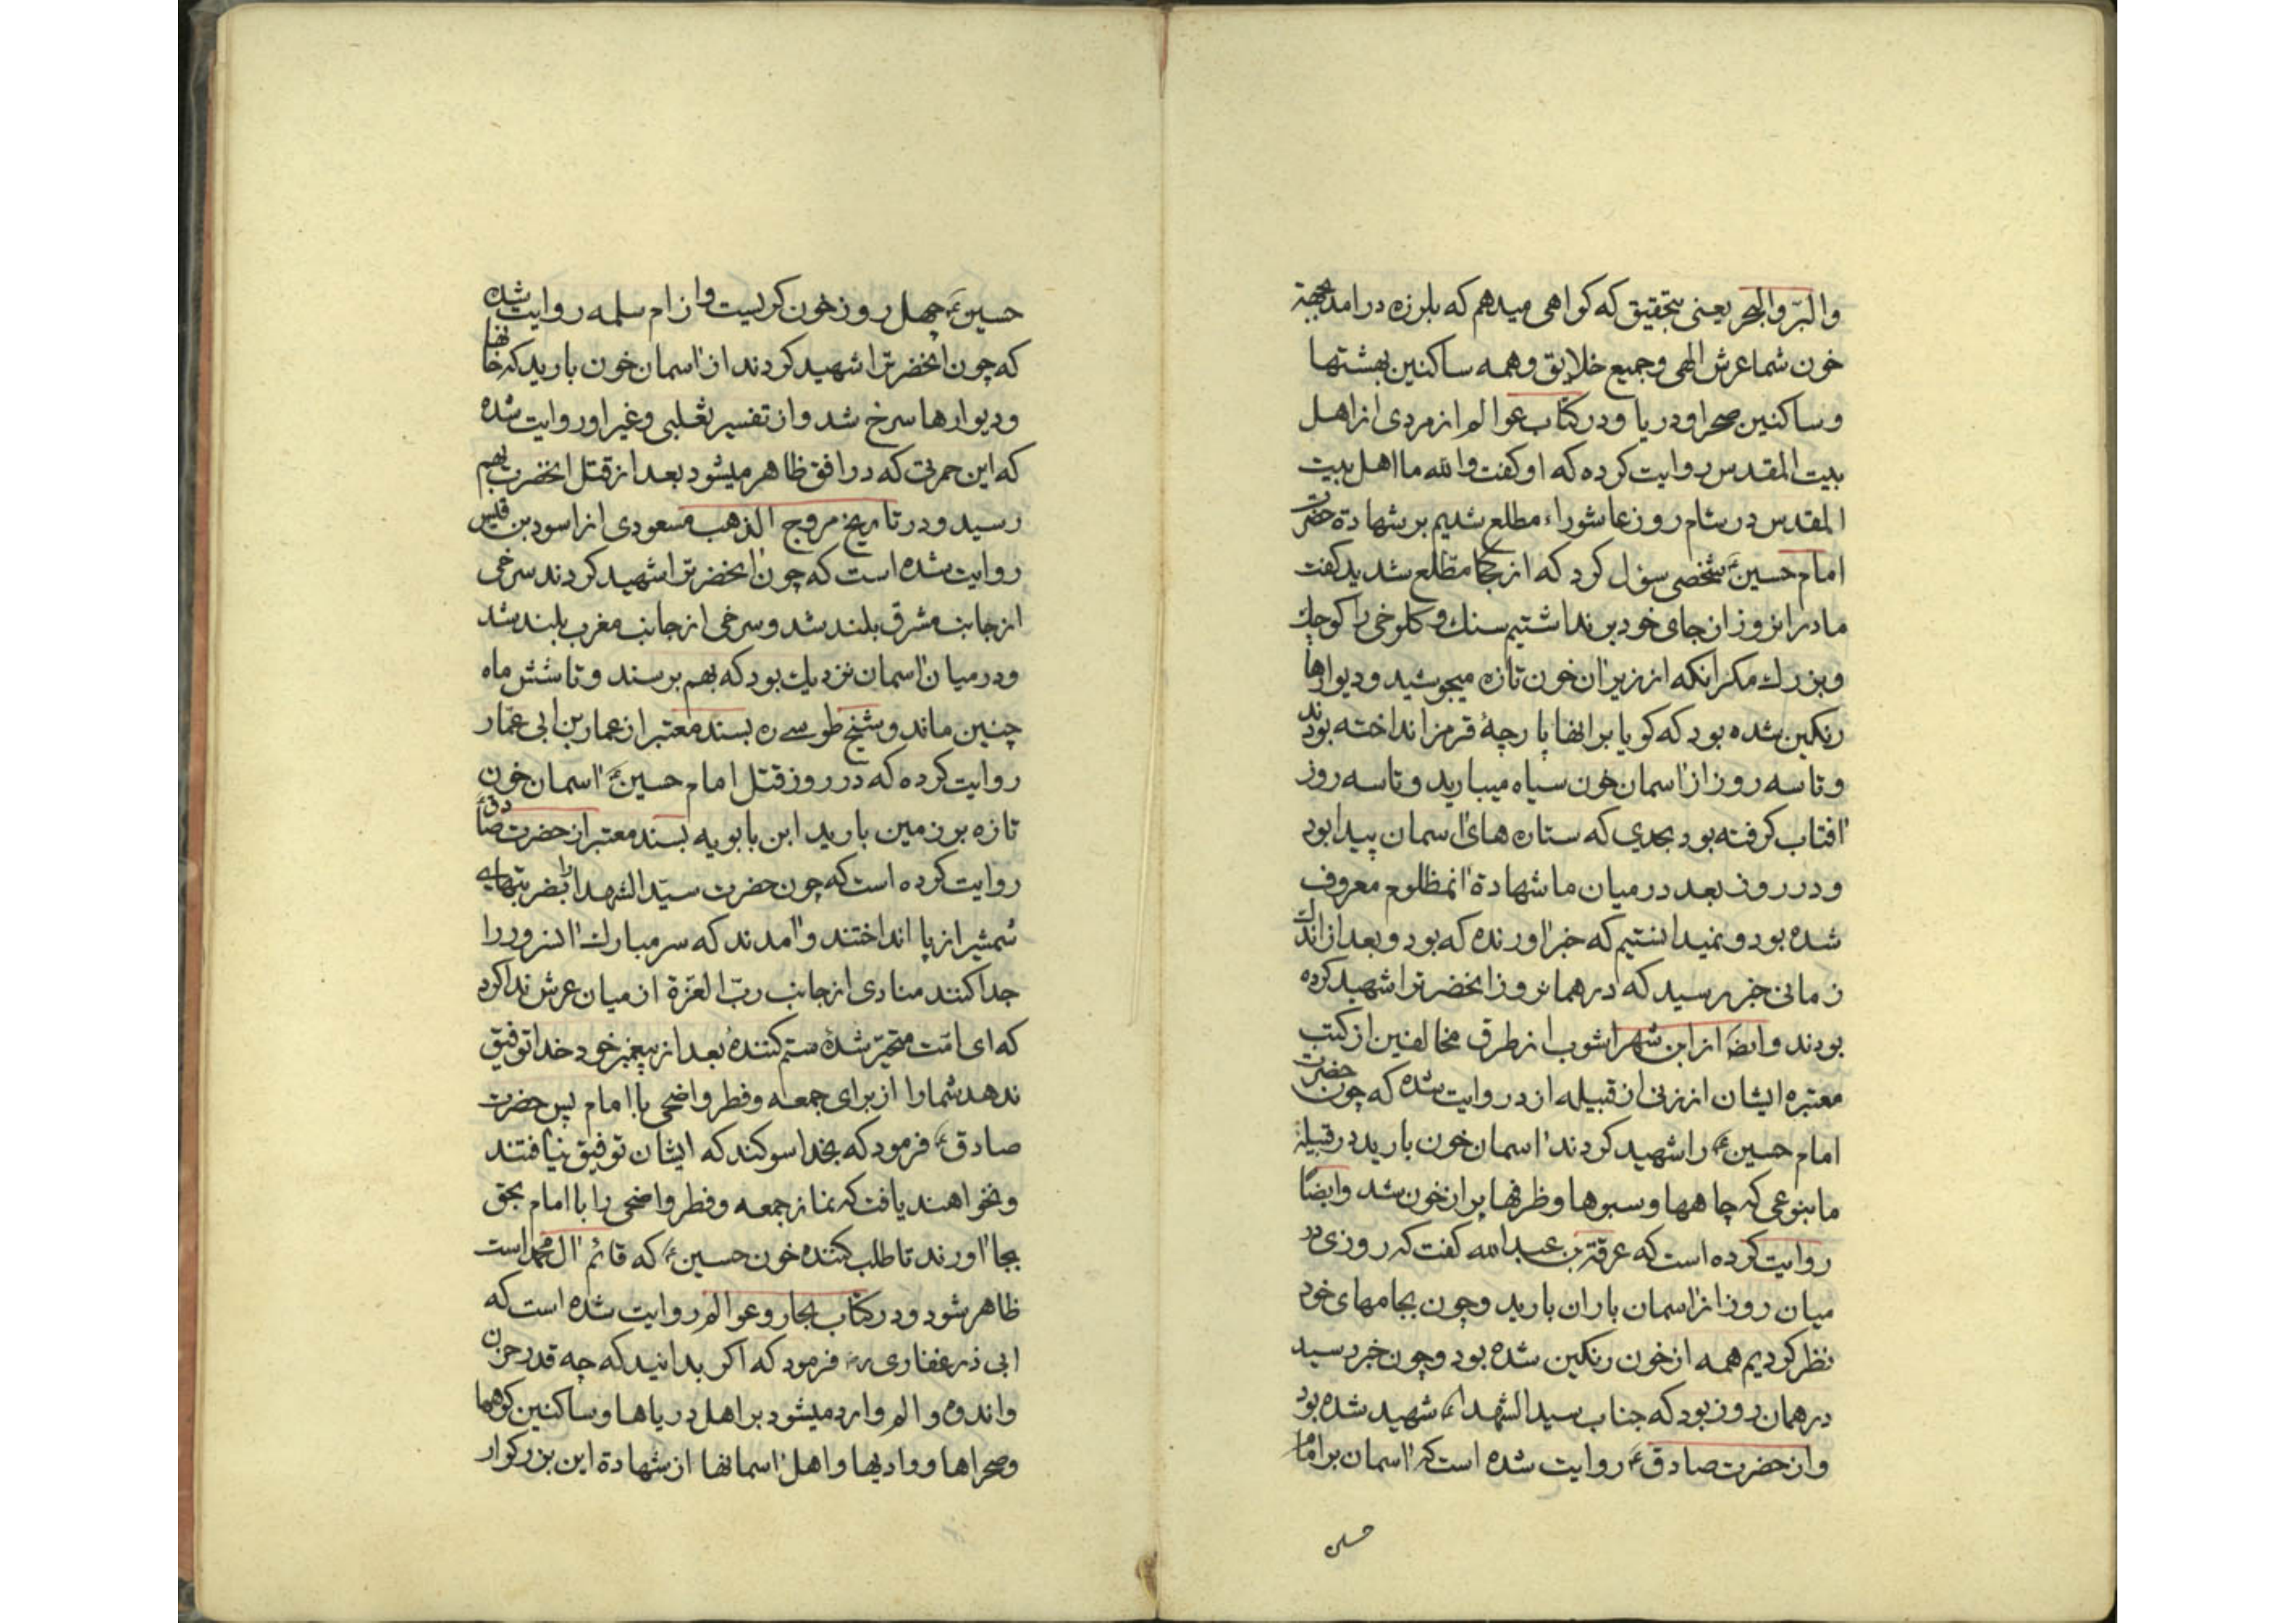 والبرّ والبحر یعنی بتحقیق که کواهی میدهم که بلرزه درامد بجهة
خون شما عرش الهی و جمیع خلایق و همه ساکنین بهشتها
و ساکنین صحرا و دریا و در کتاب عوالم از مردی از اهل
بیت المقدس روایت کرده که او کفت والله ما اهل بیت
المقدس در شام روز عاشوراء مطلع شدیم بر شهادة حضرت
امام حسین ع شخصی سؤل کرد که از کجا مطلع شدید کفت
ما درانروز از جای خود برنداشتیم سنك و کلوخی را کوچك
و بزرك مکر انکه از زیر ان خون تازه میجوشید و دیوارها
رنکین شده بود که کویا بر انها پارچهٔ قرمز انداخته بودند
و تا سه روز از اسمان خون سیاه میبارید و تا سه روز
افتاب کرفته بود بحدی که ستاره های اسمان پیدا بود
و در روز بعد در میان ما شهادة انمظلوم معروف
شده بود و نمیدانستیم که خبر اورنده که بود و بعد از اندك
زمانی خبر رسید که در همانروز انحضرترا شهید کرده
بودند وایضاً از ابن شهراشوب از طرق مخالفین از کتب
معتبره ایشان از زنی از قبیله ازد روایت شده که چون حضرت
امام حسین ع را شهید کردند اسمان خون بارید در قبیله
ما بنوعی که چاهها و سبوها و ظرفها پر از خون شد وایضاً
روایت کرده است که عرقة بن عبدالله کفت که روزی در
میان روز از اسمان باران بارید و چون بجامهای خود
نظر کردیم همه از خون رنکین شده بود و چون خبر رسید
در همان روز بود که جناب سید الشهداء ع شهید شده بود
و از حضرت صادق ع روایت شده است که اسمان بر امام
حسین
حسین ع چهل روز خون کریست و از ام سلمه روایت شده
که چون انحضرترا شهید کردند از اسمان خون بارید که خانها
و دیوارها سرخ شد و از تفسیر ثعلبی و غیر او روایت شده
که این حمرتی که در افق ظاهر میشود بعد از قتل انحضرت بهم
رسید و در تاریخ مروج الذهب مسعودی از اسود بن قیس
روایت شده است که چون انحضرترا شهید کردند سرخی
از جانب مشرق بلند شد و سرخی از جانب مغرب بلند شد
و در میان اسمان نزدیك بود که بهم برسند و تا شش ماه
چنین ماند و شیخ طوسے ره بسند معتبر از عمار بن ابی عمّار
روایت کرده که در روز قتل امام حسین ع اسمان خون
تازه بر زمین بارید ابن بابویه بسند معتبر از حضرت صادق ع
روایت کرده است که چون حضرت سیّد الشهدا را بضربتهاے
شمشیر از پا انداختند و امدند که سر مبارك انسرور را
جدا کنند منادی از جانب ربّ العزّة از میان عرش ندا کرد
که ای امّت متحیّر شدهٔ ستم کنندهٔ بعد از پیغمبر خود خدا توفیق
ندهد شما را از برای جمعه و فطر و اضحی با امام پس حضرت
صادق ع فرمود که بخدا سوکند که ایشان توفیق نیافتند
و نخواهند یافت که نماز جمعه و فطر و اضحی را با امام بحق
بجا اورند تا طلب کننده خون حسین ع که قائم ال محمد است
ظاهر شود و در کتاب بحار و عوالم روایت شده است که
ابی ذر غفاری ره فرمود که اکر بدانید که چه قدر حزن
و اندوه و الم وارد میشود بر اهل دریاها و ساکنین کوهها
و صحراها و وادیها و اهل اسمانها از شهادة این بزرکوار